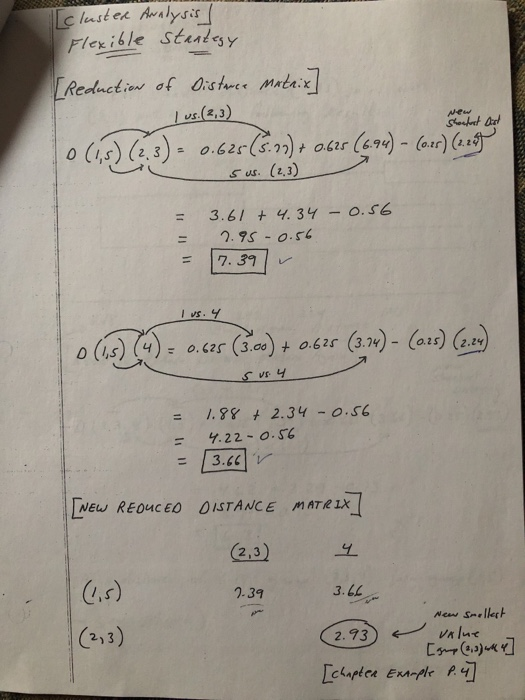 [Cluster Analysis]
Flexible Strategy
[Reduction of Distance Matrix]
1 vs. (2,3)
New Shortest Dist
D (1,5) (2,3) = 0.625 (5.77) + 0.625 (6.94) - (0.25) (2.24)
5 vs. (2,3)
= 3.61 + 4.34 - 0.56
= 7.95 - 0.56
= 7.39 ✓
1 vs. 4
D (1,5) (4) = 0.625 (3.00) + 0.625 (3.74) - (0.25) (2.24)
5 vs. 4
= 1.88 + 2.34 - 0.56
= 4.22 - 0.56
= 3.66 ✓
[NEW REDUCED DISTANCE MATRIX]
(2,3) 4
(1,5) 7.39 3.66
(2,3) 2.93 ← New Smallest
value
[group (2,3) with 4]
[Chapter Example P. 4]